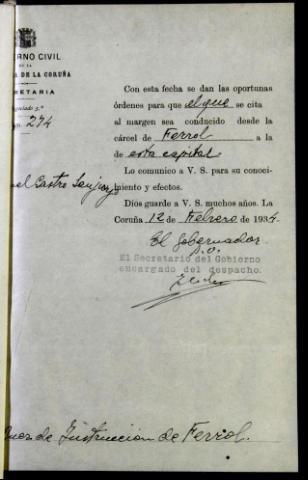 ERNO CIVIL
DE LA
A DE LA CORUÑA
RETARIA
Negociado 5.º
294
Con esta fecha se dan las oportunas
órdenes para que el que se cita
al margen sea conducido desde la
cárcel de Ferrol a la
de esta capital
Lo comunico a V. S. para su conoci-
miento y efectos.
el Castro
Dios guarde a V. S. muchos años. La
Coruña 12 de Febrero de 1934.
El Gobernador
P.O.
El Secretario del Gobierno
encargado del despacho.
Juez de Instrucción de Ferrol.